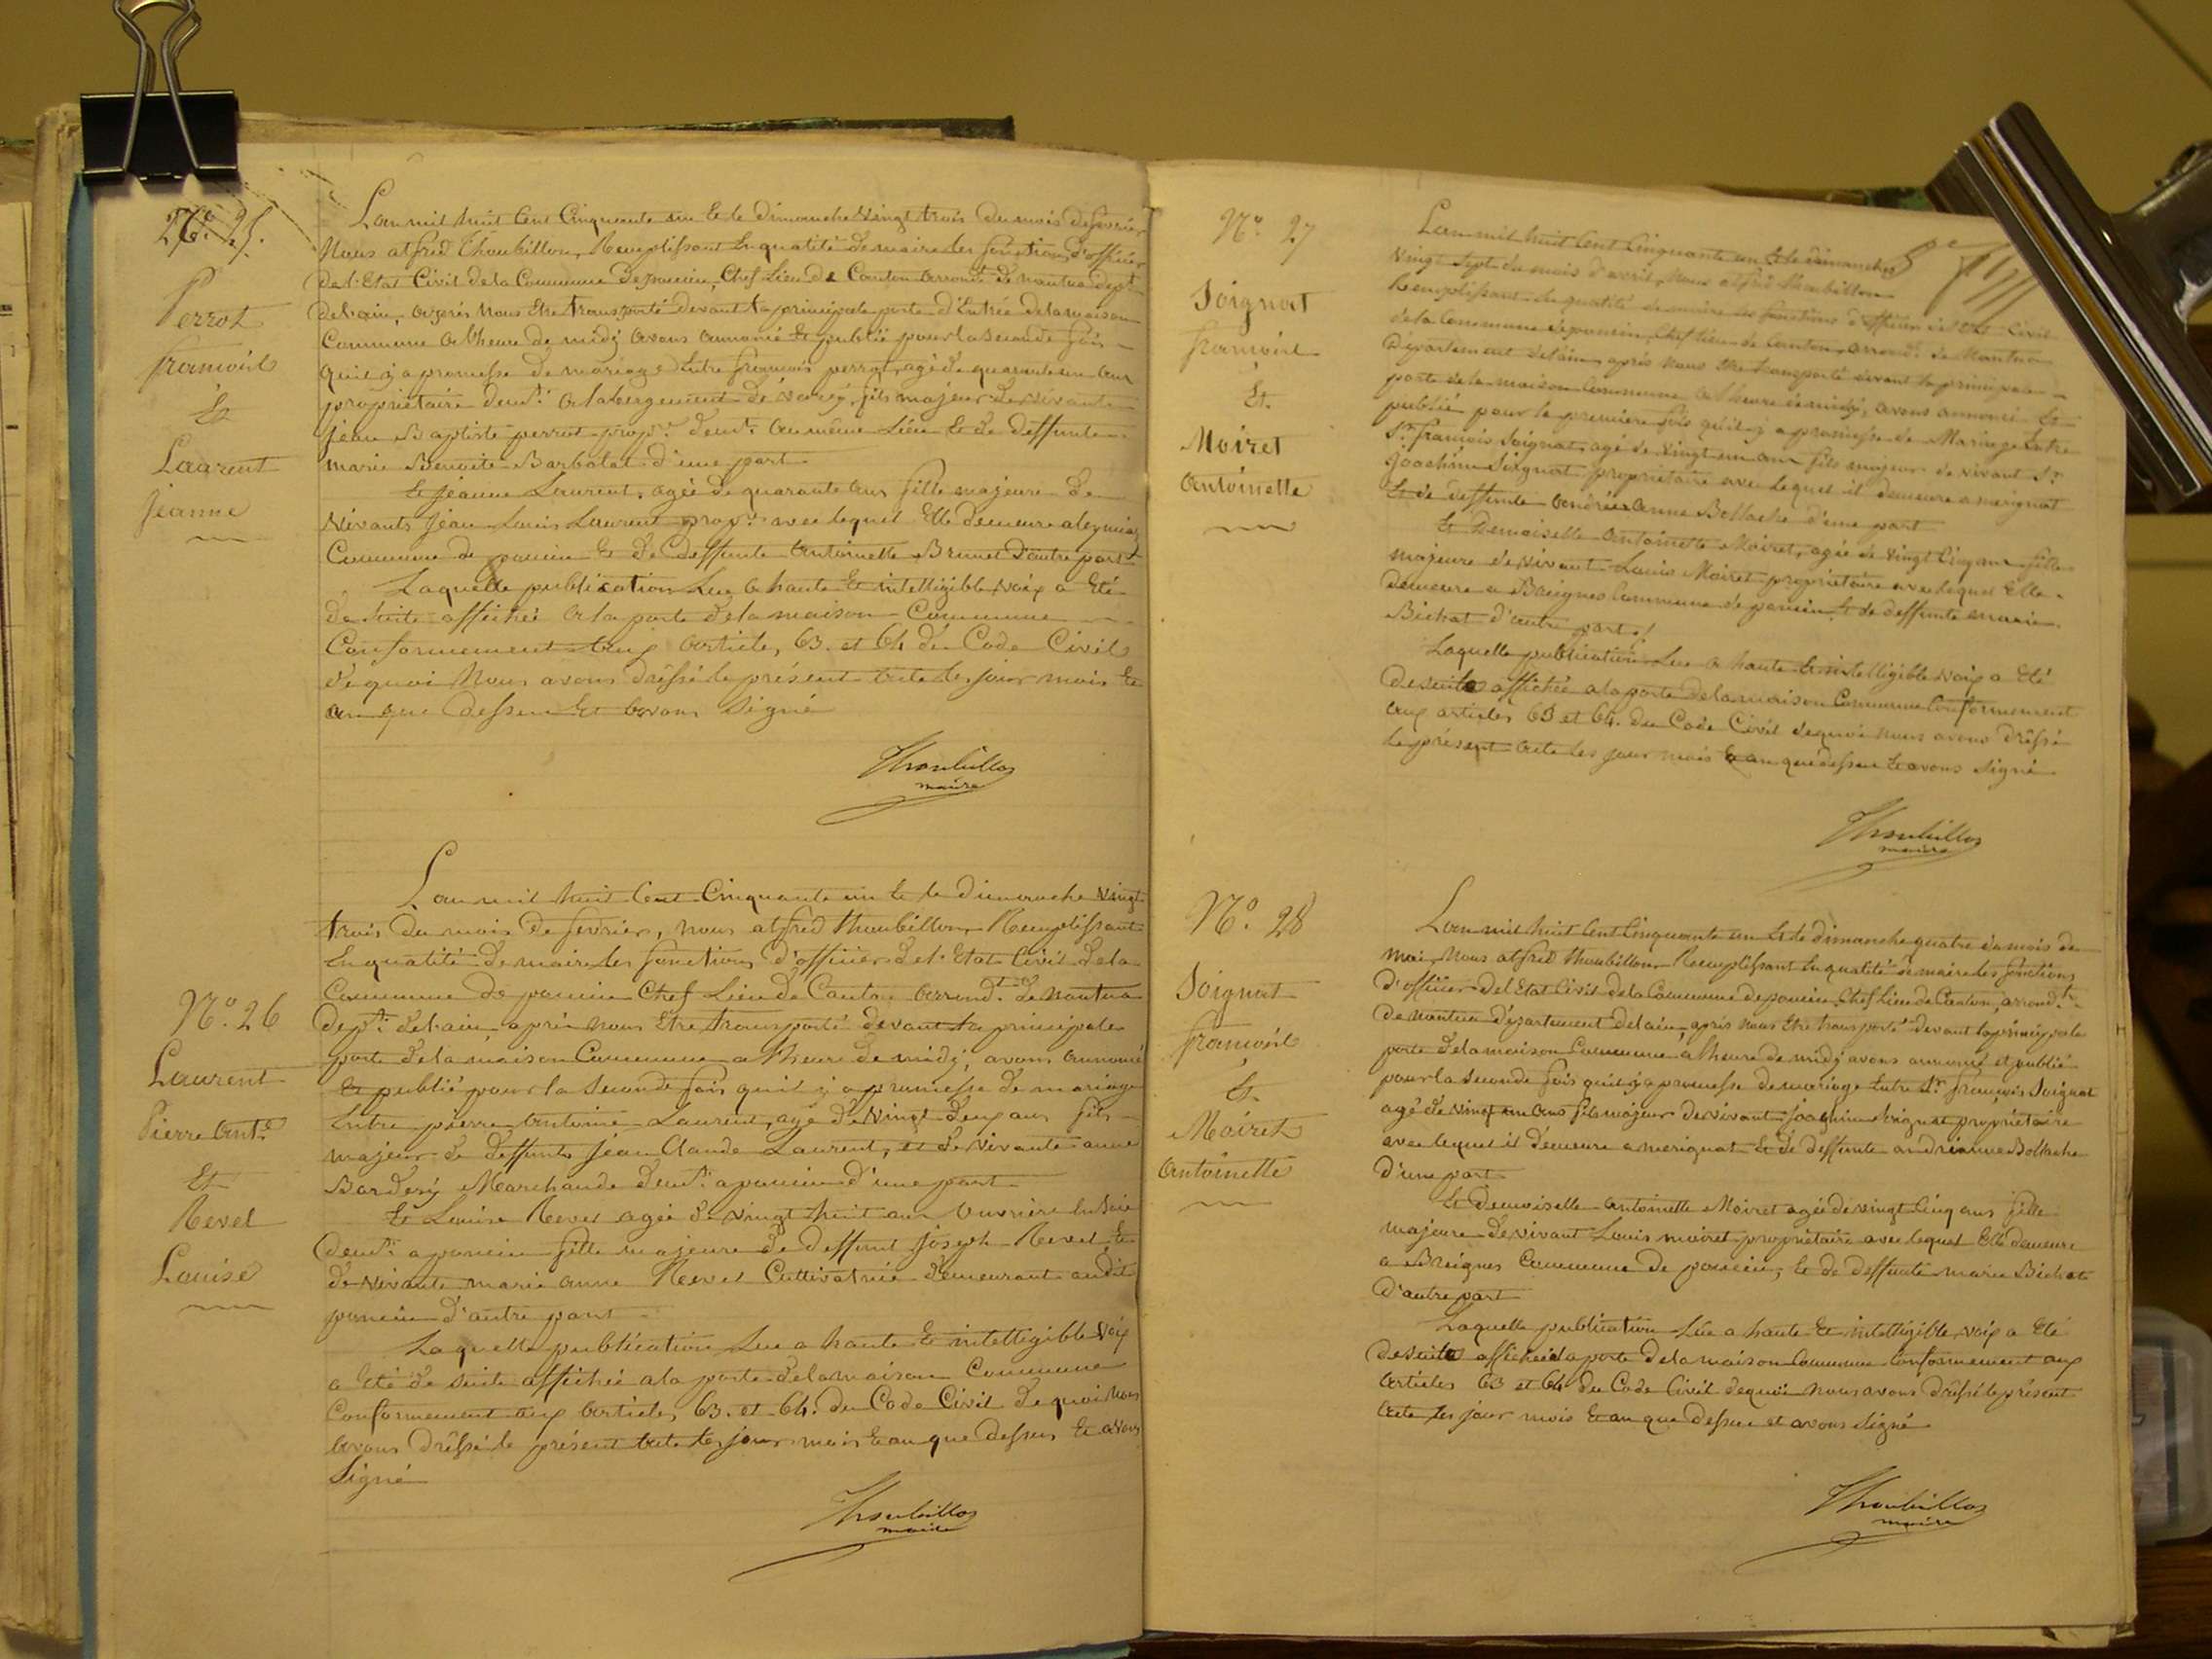 N.º 25.
Perrot
françois
Et
Laurent
Jeanne
L'an mil huit Cent Cinquante un Et le dimanche vingt trois du mois de fevrier
Nous alfred Thoubillon, Remplissant En qualité de maire les fonctions d'officier
de l'Etat Civil de la Commune de poncin, Chef Lieu de Canton arrond.t de nantua dept
de l'ain, après nous Etre transporté devant la principale porte d'Entrée de la maison
Commune a l'heure de midj avons annoncé Et publié pour la seconde fois
qu'il y a promesse de mariage Entre françois perrot, agé de quarante un ans
propriétaire demt. a l'abergement de varey, fils majeur de vivant
jean Baptiste perrot propre. demt. au même Lieu Et de deffunte
marie Benoite Barbolat d'une part
Et jeanne Laurent, agée de quarante ans fille majeure de
vivants jean Louis Laurent propre. avec lequel Elle demeure a
Commune de poncin Et de deffunte antoinette Brunet d'autre part
Laquelle publication Lue a haute Et intelligible voix a Eté
de suite affichée a la porte de la maison Commune
Conformement aux articles 63. et 64 du Code Civil
de quoi Nous avons dréssé le présent acte les jour mois Et
an que dessus Et avons Signé
Thoubillon
maire
N.º 26
Laurent
Pierre Ant.e
Et
Revel
Louise
L'an mil huit Cent Cinquante un Et le dimanche vingt
trois du mois de fevrier, nous alfred thoubillon Remplissant
En qualité de maire les fonctions d'officier de l'Etat Civil de la
Commune de poncin Chef Lieu de Canton arrond.t de Nantua
dept. de l'ain après nous Etre transporté devant la principale
porte de la maison Commune a l'heure de midj, avons annoncé
Et publié pour la seconde fois qu'il y a promesse de mariage
Entre pierre antoine Laurent, agé de vingt deux ans fils
majeur de deffunt jean Claude Laurent, et de vivante anne
Bardery Marchande demt. a poncin d'une part
Et Louise Revel agée de vingt huit ans Ouvrière En Soie
demt. a poncin fille majeure de deffunt joseph Revel Et
de vivante marie anne Revel Cultivatrice demeurant audit
poncin d'autre part
Laquelle publication Lue a haute Et intelligible Voix
a Eté de suite affichée a la porte de la maison Commune
Conformement aux articles 63. et 64. du Code Civil de quoi nous
avons dréssé le présent acte les jour mois Et an que dessus Et avons
Signé
Thoubillon
maire
N.º 27
Soignat
françois
Et.
Moiret
Antoinette
L'an mil huit Cent Cinquante un Et le dimanche
vingt sept du mois d'avril, Nous alfred thoubillon
Remplissant En qualité de maire les fonctions d'officier de l'Etat Civil
de la Commune de poncin, Chef lieu de Canton, arrond.t de Nantua
Département de l'ain, après nous Etre transporté devant la principale
porte de la maison Commune a l'heure de midj, avons annoncé Et
publié pour la premiere fois qu'il y a promesse de Mariage Entre
Sr. françois Soignat, agé de vingt un ans fils majeur de vivant Sr.
joachim Soignat propriétaire avec lequel il demeure a merignat
Et de deffunte andréeanne Bollache d'une part
Et Demoiselle antoinette Moiret, agée de vingt Cinq ans fille
majeure de vivant Louis Moiret propriétaire avec lequel Elle
demeure a Breignes Commune de poncin, Et de deffunte marie
Bichat d'autre part
Laquelle publication Lue a haute Et intelligible voix a Eté
de suite affichée a la porte de la maison Commune Conformement
aux articles 63 et 64. du Code Civil de quoi nous avons dréssé
le présent acte les jour mois Et an que dessus Et avons Signé
Thoubillon
maire
N.º 28
Soignat
françois
Et
Moiret
Antoinette
L'an mil huit Cent Cinquante un Et le dimanche quatre du mois de
mai, Nous alfred thoubillon Remplissant En qualité de maire les fonctions
d'officier de l'Etat Civil de la Commune de poncin, Chef Lieu de Canton, arrond.t
de nantua département de l'ain, après nous Etre transporté devant la principale
porte de la maison Commune a l'heure de midj avons annoncé et publié
pour la seconde fois qu'il y a promesse de mariage Entre Sr. françois Soignat
agé de vingt un ans fils majeur de vivant joachim Soignat propriétaire
avec lequel il demeure a merignat Et de deffunte andréanne Bollache
d'une part
Et Demoiselle antoinette Moiret agée de vingt Cinq ans fille
majeure de vivant Louis moiret propriétaire avec lequel Elle demeure
a Breignes Commune de poncin, Et de deffunte marie Bichat
d'autre part
Laquelle publication Lue a haute Et intelligible voix a Eté
de suite affichée a la porte de la maison Commune Conformement aux
articles 63 et 64 du Code Civil de quoi nous avons dréssé le présent
acte les jour mois Et an que dessus et avons Signé
Thoubillon
maire